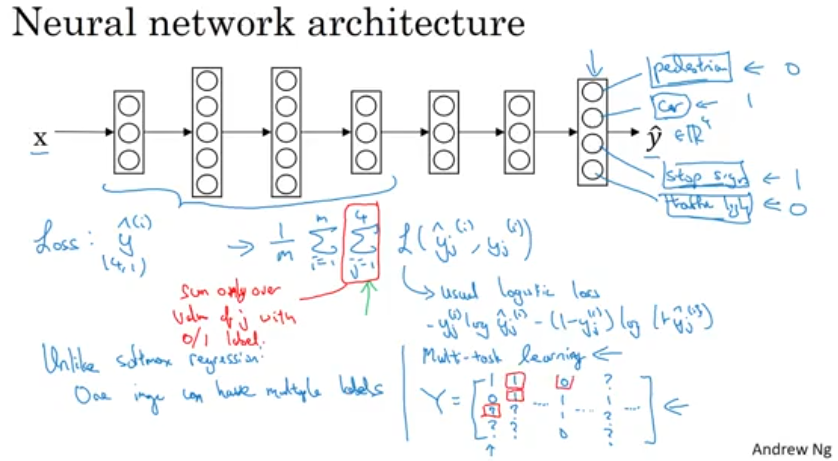 Neural network architecture
x
ŷ ∈ ℝ⁴
pedestrian ← 0
car ← 1
stop sign ← 1
traffic light ← 0
Loss: ŷ^(i) → 1/m Σ_{i=1}^{m} Σ_{j=1}^{4} L(ŷ_j^(i), y_j^(i))
(4,1)
sum only over
value of j with
0/1 label.
usual logistic loss
- y_j^(i) log ŷ_j^(i) - (1-y_j^(i)) log (1-ŷ_j^(i))
Unlike softmax regression:
One image can have multiple labels
Multi-task learning ←
Y = [
1 1 0 ?
0 1 ... 1 ... 1 ...
? ? 1 ?
? ? 0 ?
] ←
Andrew Ng